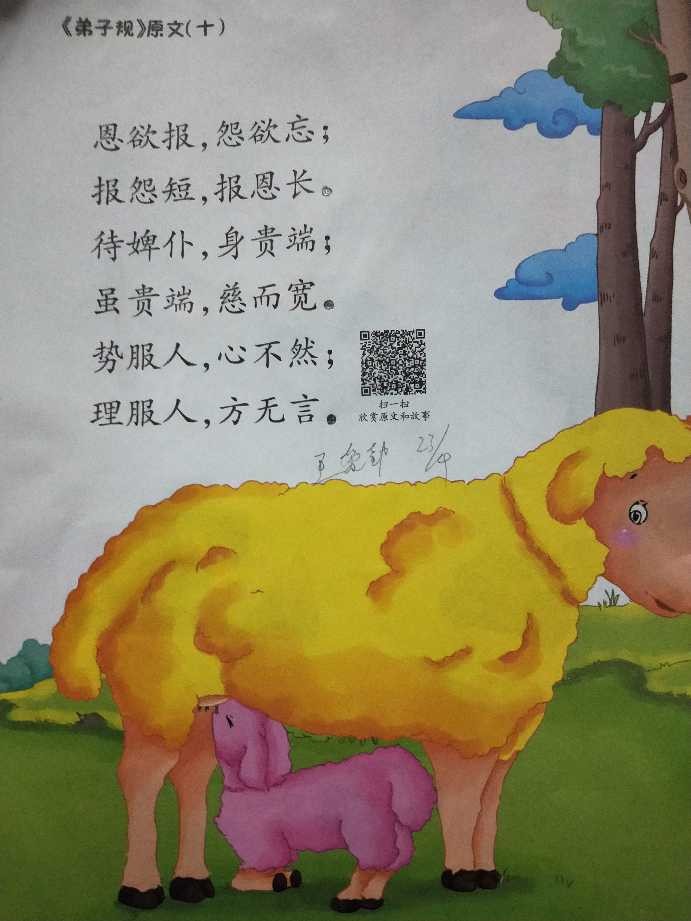 《弟子规》原文(十)
恩欲报,怨欲忘;
报怨短,报恩长。
待婢仆,身贵端;
虽贵端,慈而宽。
势服人,心不然;
理服人,方无言。
扫一扫
欣赏原文和故事
23/4